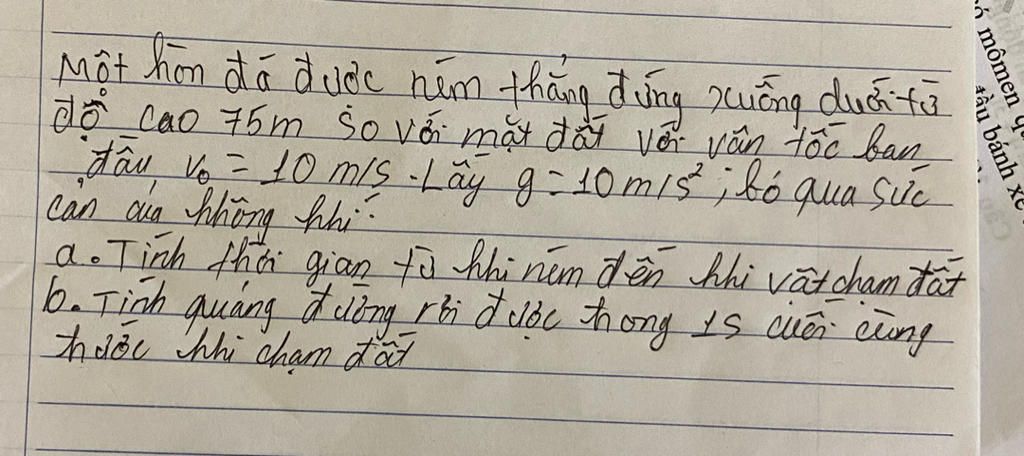 Một hòn đá được ném thẳng đứng xuống dưới từ
độ cao 75m so với mặt đất với vân tốc ban
đầu v₀ = 10 m/s. Lấy g = 10 m/s²; bỏ qua sức
cản của không khí.
a. Tính thời gian từ khi ném đến khi vật chạm đất
b. Tính quãng đường rơi được trong 1s cuối cùng
trước khi chạm đất
mômen
đầu bánh xe